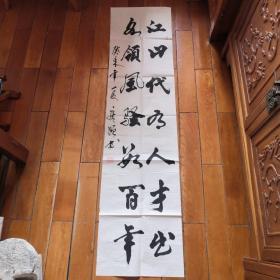 江山代有人才出
各領風騷数百年
癸未年夏
书